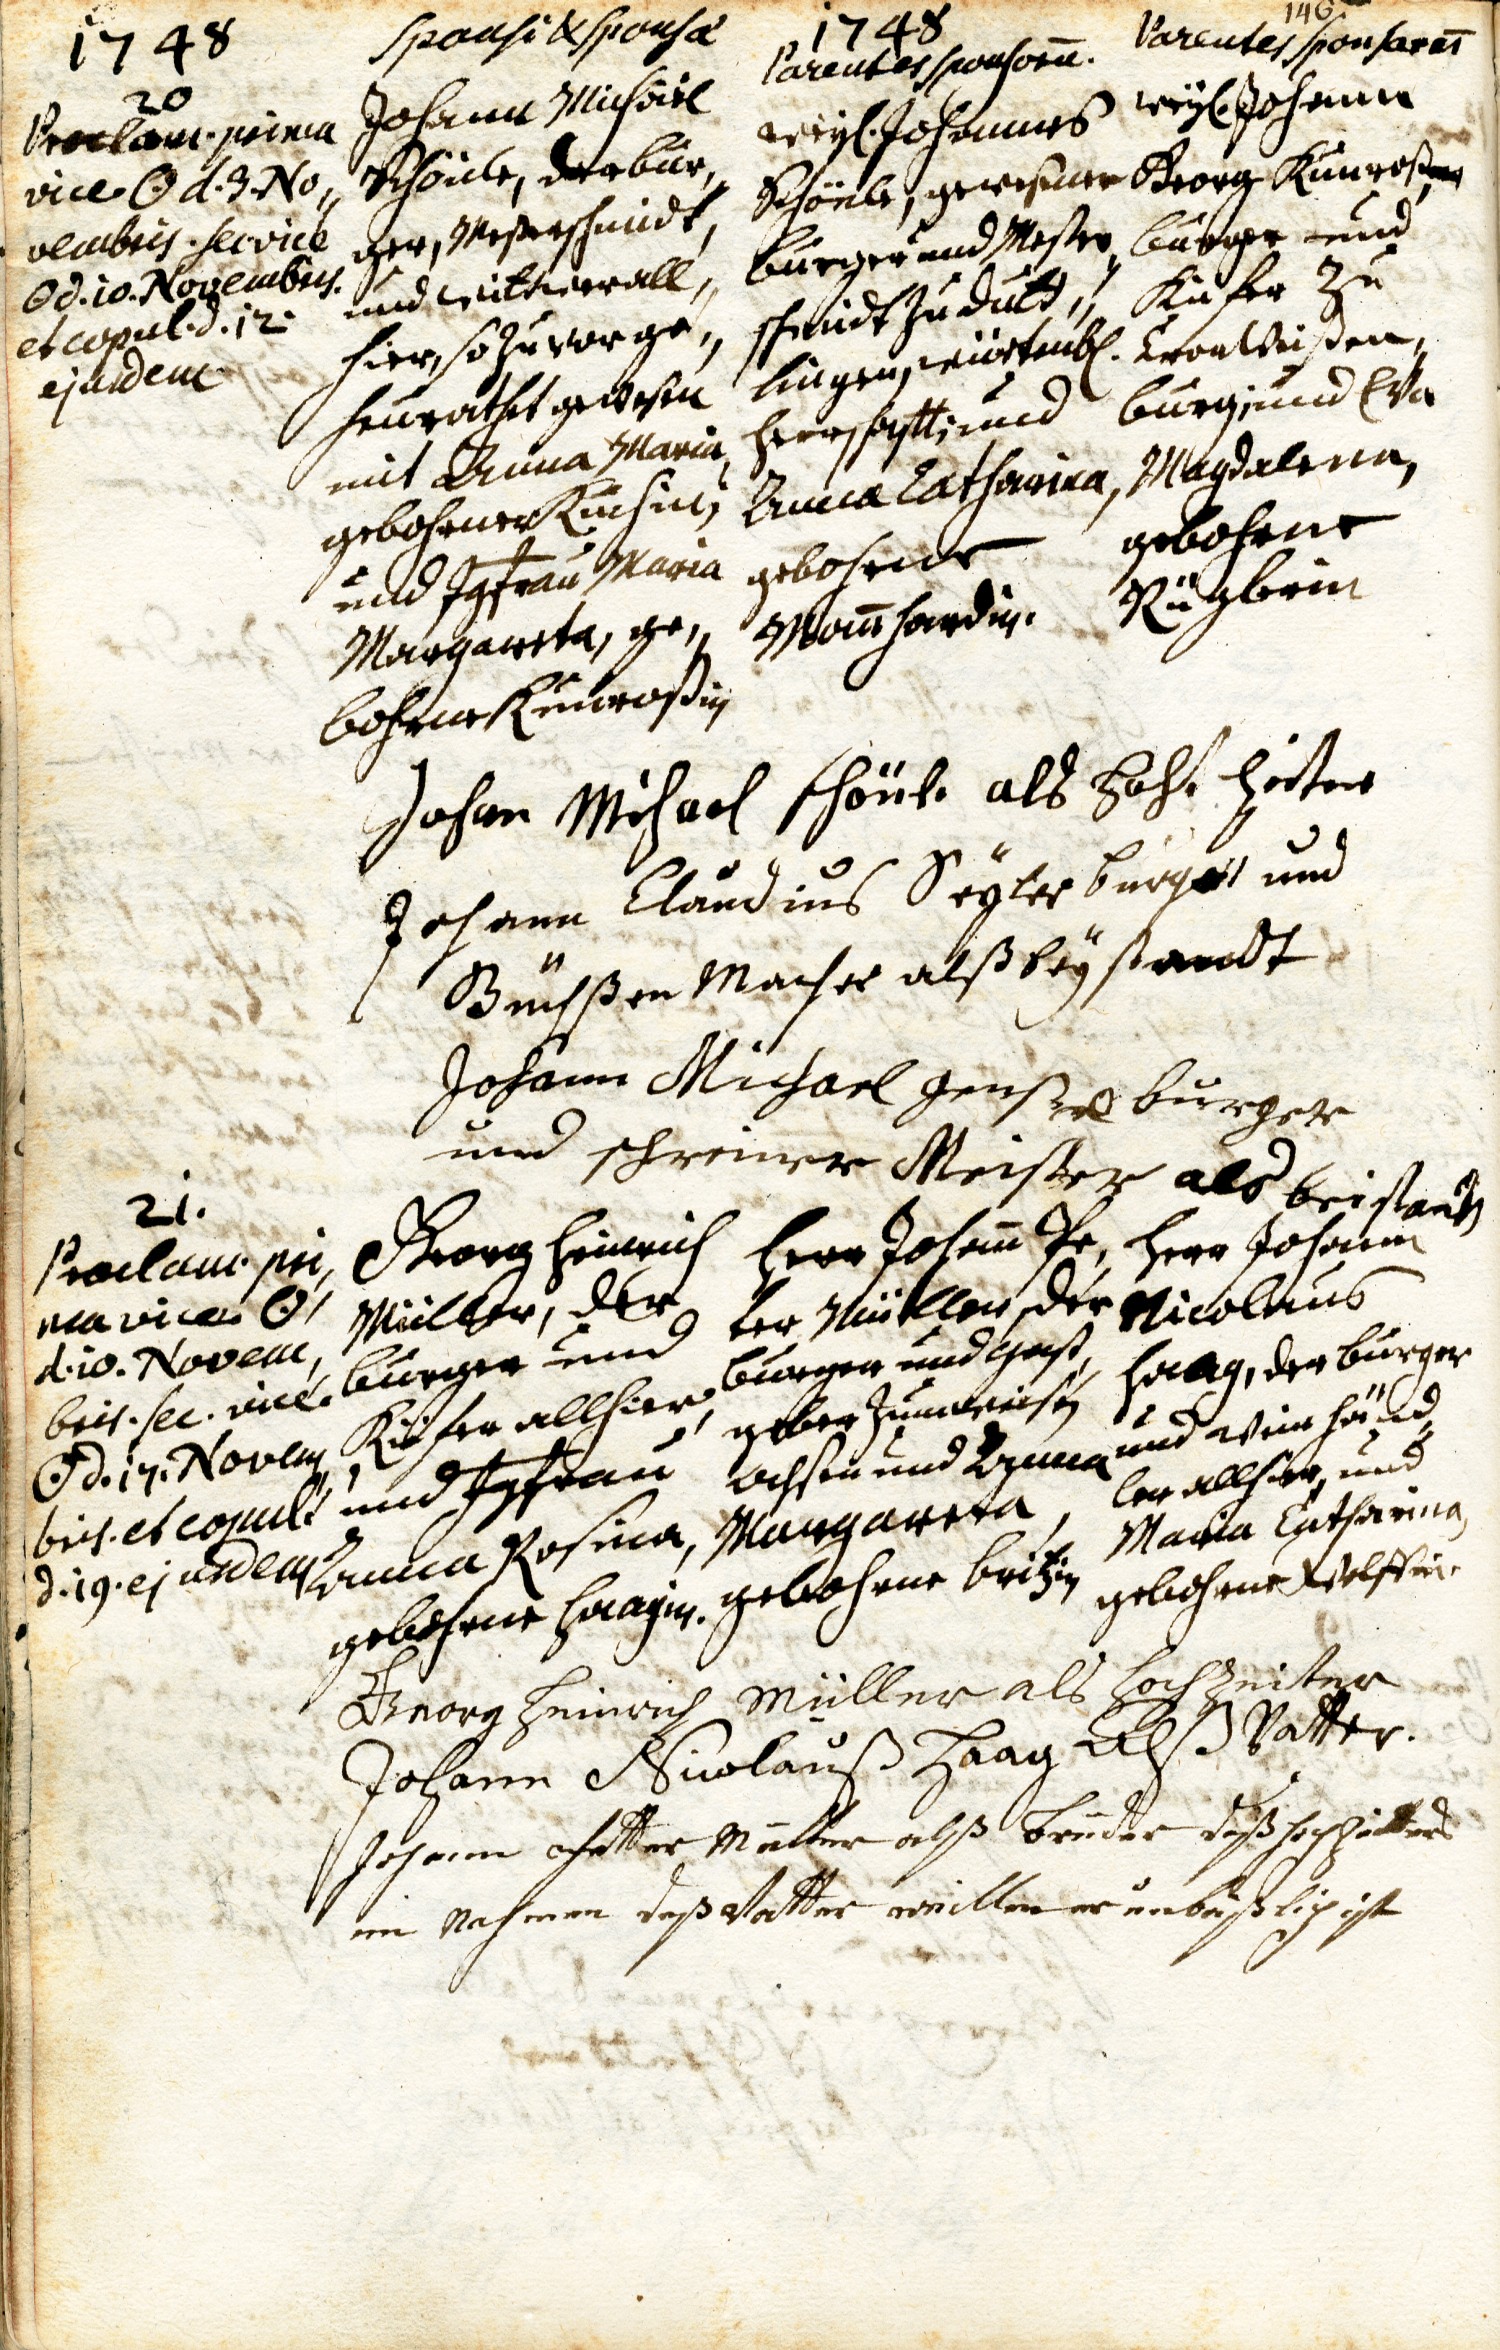 146
1748
Sponsi & Sponsæ
1748
Parentes Sponsorū.
Parentes Sponsarū
20
Proclam. prima
vice ☉ d. 3. No„
vembris. sec. vice
☉ d. 10. Novembris.
et copul. d. 12.
ejusdem.
Johann Michael
Schönle, der bur„
ger, Messerschmidt,
und wittwer all„
hier, so zuvor ge„
heurathet gewesen
mit Anna Maria,
gebohrner Kuchin,
und Jgfrau Maria
Margareta, ge„
bohrne Kunroßin
weyl. Johannes
Schönle, gewesener
burger und Messer„
schmidt zu dutt„
lingen, würtembl.
herrschafft; und
Anna Catharina,
gebohrne
Mannhardin.
weyl. Johann
Georg Kunroß,
burger und
Kiefer zu
Cron Weißen„
burg; und Eva
Magdalena,
gebohrne
Rüglerin
Johan Michael schönle als hoh
Johann Claudius Seyler burger und
Büchßen Macher alß beystandt
Johann Michael burger
und schreiner Meister als beistandt
21.
Proclam. pri„
ma vice ☉
d. 10. Novem„
bris. sec. vice.
☉ d. 17. Novem„
bris. et copul.
d. 19. ejusdem
Georg Heinrich
Müller, der
burger und
Kiefer allhier,
und Jgfrau
Anna Rosina,
gebohrne Haagin.
Herr Johann Pe„
ter Müller, der
burger und gast„
geber zum weisen
ochsen und Anna
Margareta,
gebohrne britzin
Herr Johann
Nicolaus
Haag, der burger
und Weinhänd„
ler allhier, und
Maria Catharina,
gebohrne Wolffin.
Georg Heinrich Müller als Hochzeiter
Johann Nicolauß Haag Alß Vatter.
Johann Petter Müller alß bruder deß hochzeitters
im Nahmen deß Vatter weillen er unbäßlich ist